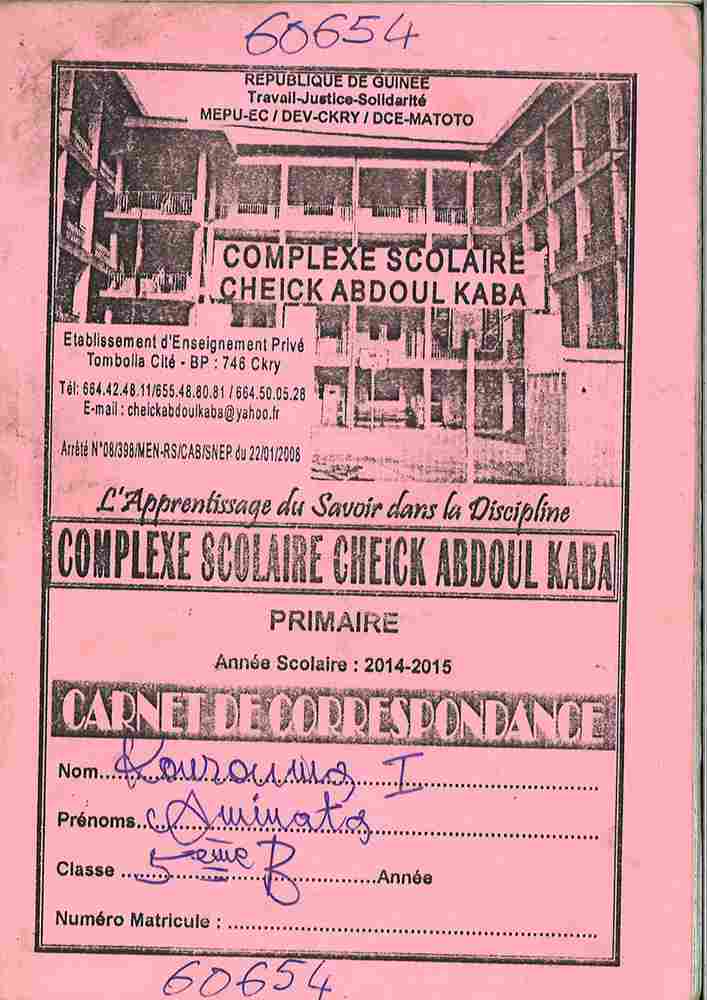 60654
REPUBLIQUE DE GUINEE
Travail-Justice-Solidarité
MEPU-EC / DEV-CKRY / DCE-MATOTO
COMPLEXE SCOLAIRE
CHEICK ABDOUL KABA
Etablissement d'Enseignement Privé
Tombolia Cité - BP : 746 Ckry
Tél: 664.42.48.11/655.48.80.81 / 664.50.05.28
E-mail : cheickabdoulkaba@yahoo.fr
Arrêté N°08/398/MEN-RS/CAB/SNEP du 22/01/2008
L'Apprentissage du Savoir dans la Discipline
COMPLEXE SCOLAIRE CHEICK ABDOUL KABA
PRIMAIRE
Année Scolaire : 2014-2015
CARNET DE CORRESPONDANCE
Nom... Kourouma I
Prénoms.. Aminata
Classe ... 5ème B ...Année
Numéro Matricule : ...
60654